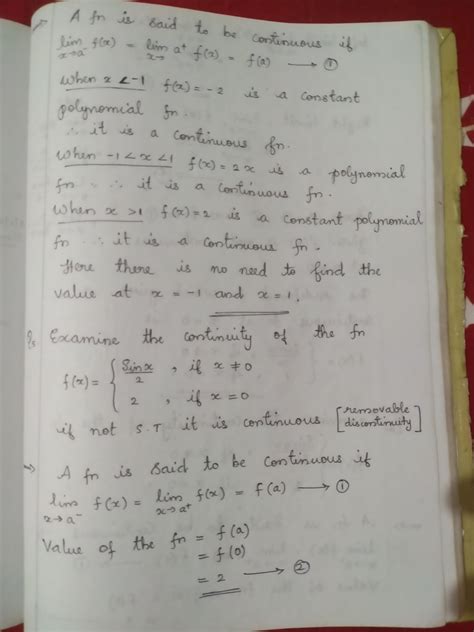 → A fn is said to be continuous if
lim x→a⁻ f(x) = lim x→ a⁺ f(x) = f(a) → ①
When x < -1 f(x) = -2 is a constant
polynomial fn
∴ it is a continuous fn.
When -1 < x < 1 f(x) = 2x is a polynomial
fn ∴ it is a continuous fn.
When x > 1 f(x) = 2 is a constant polynomial
fn ∴ it is a continuous fn.
Here there is no need to find the
value at x = -1 and x = 1.
Examine the continuity of the fn
f(x) = { Sinx/2 , if x ≠ 0
2 , if x = 0
if not S.T it is continuous [removable
discontinuity]
→ A fn is said to be continuous if
lim x→a⁻ f(x) = lim x→a⁺ f(x) = f(a) → ①
Value of the fn = f(a)
= f(0)
= 2 → ②